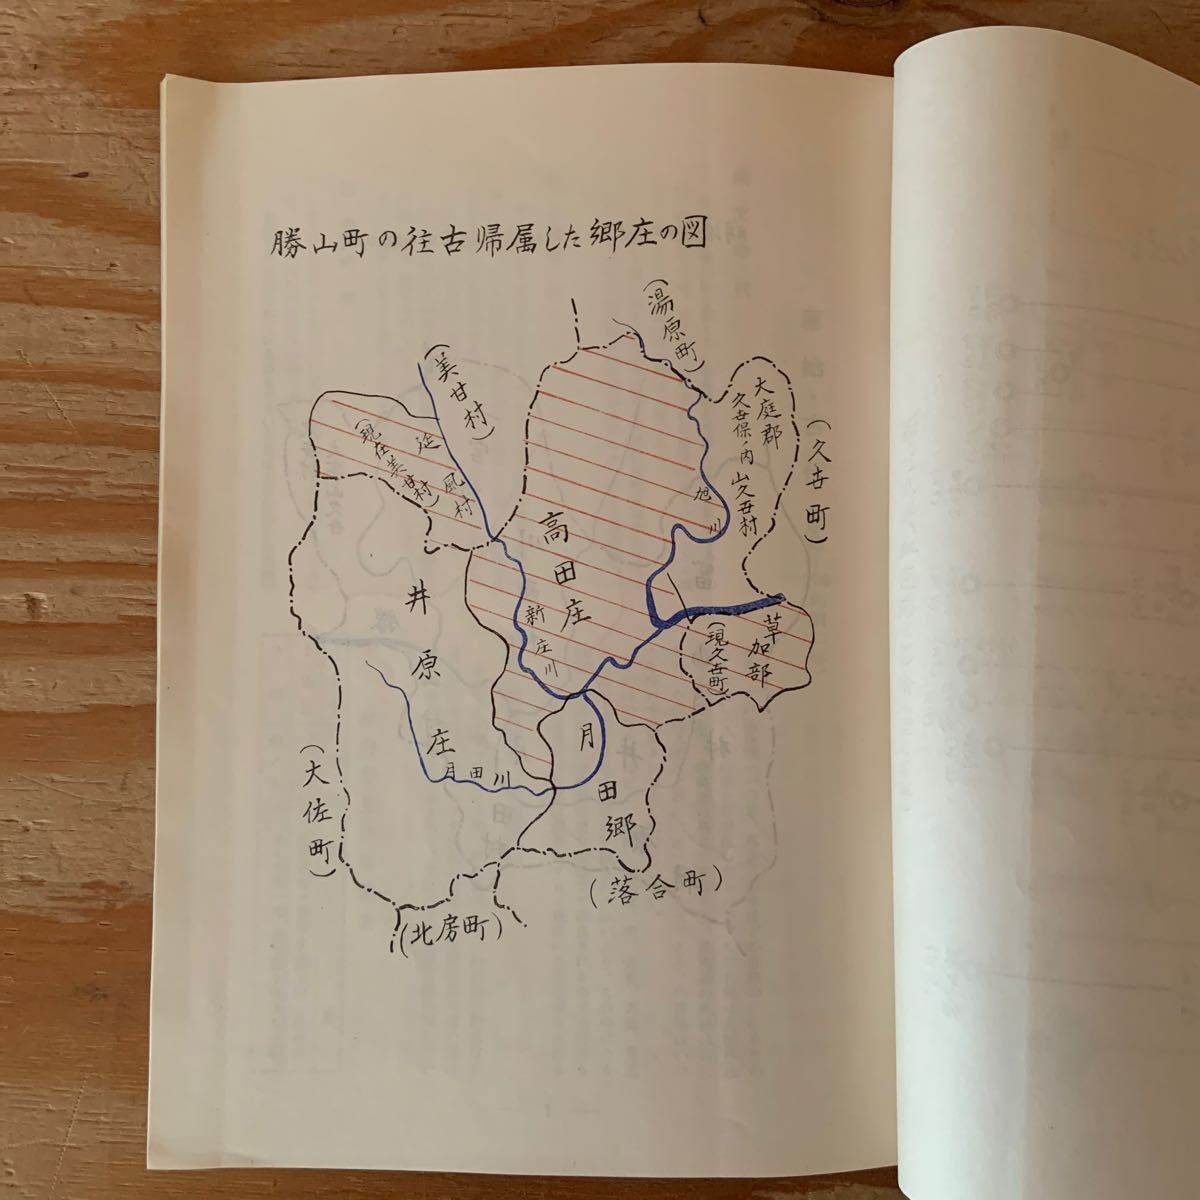 勝山町の往古帰属した郷庄の図
(湯原町)
(美甘村)
大庭郡
久世保ノ内 山久世村
(久世町)
延風村
(現在美甘村)
旭川
高田庄
新庄川
井原庄
草加部
(現久世町)
月田郷
月田川
(大佐町)
(落合町)
(北房町)